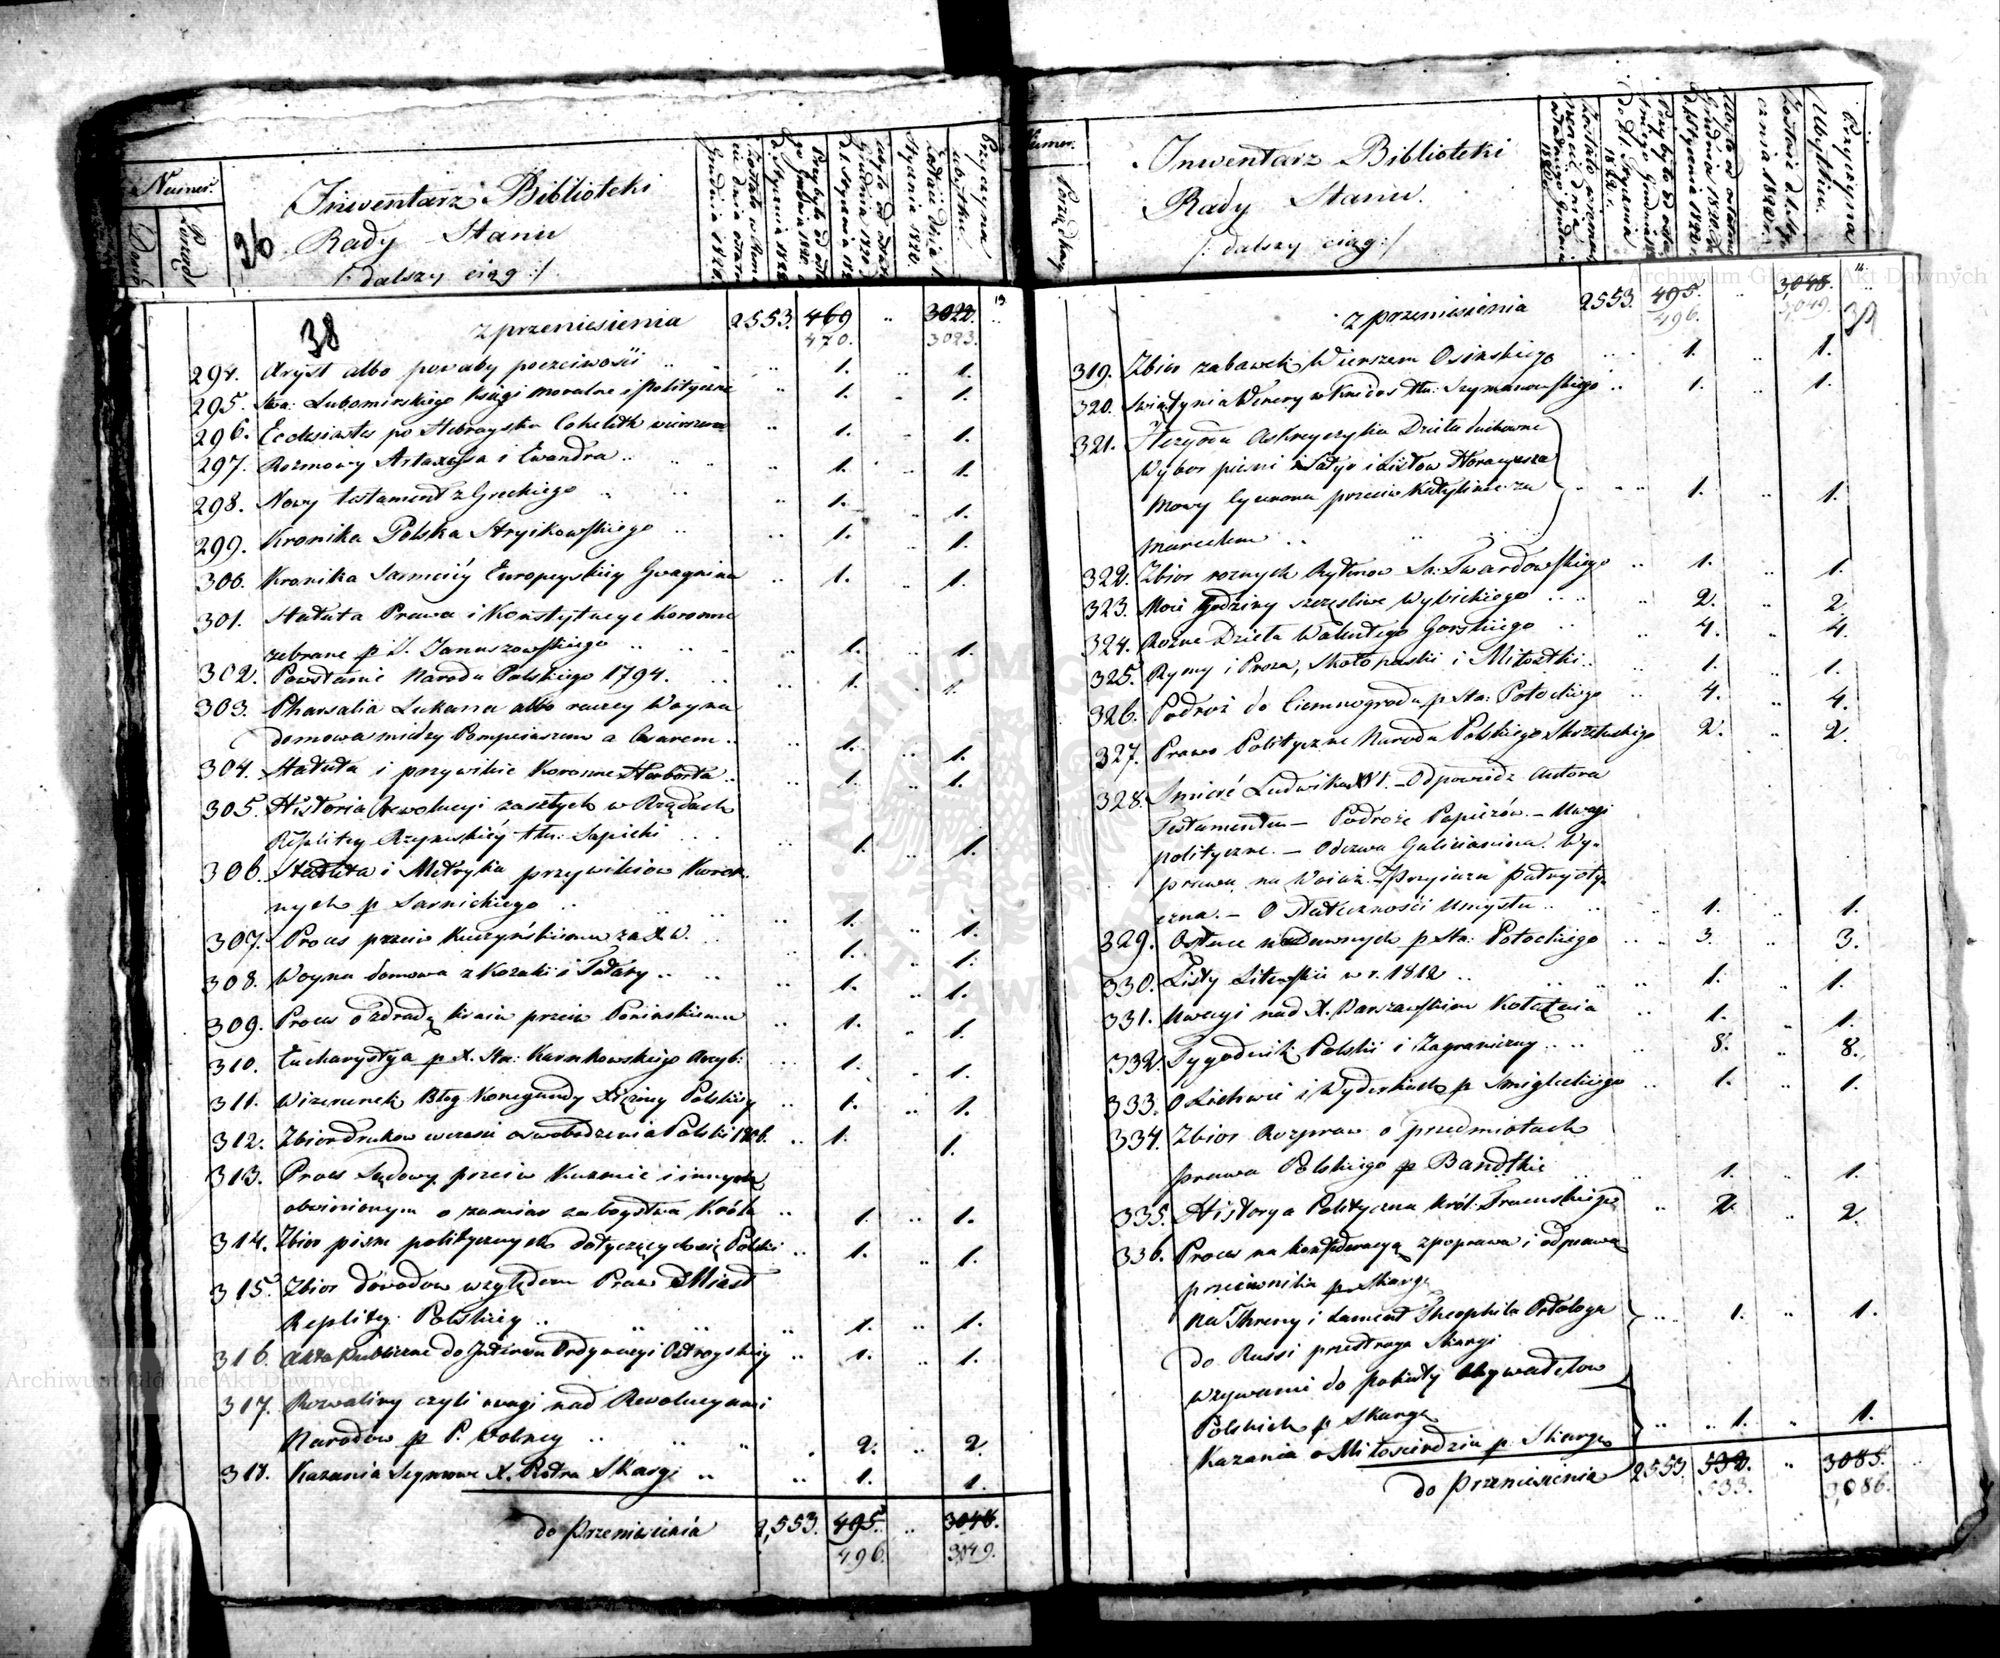 Numer.
Dawny
Porząd:
36
Inwentarz Biblioteki
Rady Stanu
/: dalszy ciąg :/
Przyczyna
ubytku
38
z przeniesienia 2553. 469 .. 3022. ..
470. 3023.
294. Aryst albo powaby poczciwości .. .. 1. 1.
295. Sta: Lubomirskiego Księgi moralne i polityczne .. 1. .. 1.
296. Ecclesiastes po Hebraysku Coheleth wierszem .. 1. .. 1.
297. Rozmowy Artaxessa i Ewandra .. .. 1. .. 1.
298. Nowy testament z Greckiego .. .. 1. .. 1.
299. Kronika Polska Stryikowskiego .. .. 1. .. 1.
300. Kronika Sarmacÿy Europeyskiey Gwagnina .. 1. .. 1.
301. Statuta Prawa i Konstytucye koronne
zebrane p J. Januszowskiego .. .. 1. 1.
302. Powstanie Narodu Polskiego 1794. .. 1. .. 1.
303. Pharsalia Lukana albo raczey Woyna
domowa między Pompeiuszem a Cesarem .. .. 1. .. 1.
304. Statuta i przywileie Koronne Herborta .. .. 1. .. 1.
305. Historia rewolucyi zaszłych w Rządach
Rzplitey Rzymskiéy tłu: Sapieki .. 1. .. 1.
306. Statuta i Metryka przywileiow Koron
nych p Sarnickiego .. .. 1. .. 1.
307. Proces przeciw Kuczyńskiemu .. 1. .. 1.
308. Woyna domowa z Kozaki i Tatary .. .. 1. .. 1.
309. Proces o zdradę kraiu przeciw Ponińskiemu .. 1. .. 1.
310. Eucharystya p X. Sta: Karnkowskiego Arcyb: .. 1. .. 1.
311. Wizerunek Błog Konegundy Xiężney Polskiey .. 1. .. 1.
312. Zbior drukow wczesie oswobodzenia Polski 1806. .. 1. 1.
313. Proces Sądowy przeciw Kuzmie i innych
obwinionym o zamiar zaboystwa Króla .. 1. .. 1.
314. Zbior pism politycznych dotyczących się Polski .. 1. .. 1.
315. Zbior dowodow względem Praw Miast
Rzplitey Polskiey .. .. .. 1. .. 1.
316. Akta publiczne do Interesu Ordynacyi Ostrogskiey .. 1. .. 1.
317. Rozwaliny czyli uwagi nad Rewolucyami
Narodow p P. Wolney .. .. 2. .. 2.
318. Kazania Seymowe X. Piotra Skargi .. .. 1. 1.
do przeniesienia 2,553. 495. .. 3048.
496. 3049.
Numer.
Porządkowy
Inwentarz Biblioteki
Rady Stanu.
/: dalszy ciąg :/
Ubytku.
Przyczyna
z przeniesienia 2553. 495. .. 3048. ..
496. 3049.
319. Zbior zabawek Wierszem Osinskiego .. 1. .. 1.
320. Swiątynia Wenery w Knidos tłu: Szymanowskiego .. 1. .. 1.
321. Dzieła duchowne
Wybor piesni Satyr i Listow Horacyusza
Mowy Cycerona przeciw Katylinie za .. 1. .. 1.
Marcelem ..
322. Zbior roznych Rytmow Sa: Twardowskiego .. 1. .. 1.
323. Moie godziny szczęsliwe Wybickiego .. .. 2. .. 2.
324. Rozne Dzieła Walentego Gorskiego .. .. 4. .. 4.
325. Rymy i Proza, Skotopaski i Miłostki .. 1. .. 1.
326. Podroż do Ciemnogrodu p Sta: Potockiego .. 4. .. 4.
327. Prawo Polityczne Narodu Polskiego Skrzetuskiego 2. .. 2.
328. Smierć Ludwika XVI. – Odpowiedz Autora
Testamentu – Podroże Papieżów. – Uwagi
polityczne. – Odezwa Galicianina. Wy-
prawa na Woiaż. – Przyiazn patryoty
czna. – O Stateczności Umysłu .. .. 1. .. 1.
329. p Sta: Potockiego .. 3. .. 3.
330. Listy Litewskie w r. 1812 .. .. 1. .. 1.
331. Uwagi nad X. Warszawskim Kołłątaia .. 1. .. 1.
332. Tygodnik Polski i Zagraniczny .. .. 8. .. 8.
333. O Lichwie i Wyderkach p Smigleckiego .. 1. .. 1.
334. Zbior Rozpraw o przedmiotach
prawa Polskiego p Bandtkie 1. .. 1.
335. Historya Polityczna Król: Francuskiego .. 2. .. 2.
336. Proces na konfederacyą zpoprawą i odprawą
przeciwnika p. Skargę
Na Threny i Lament Theophila Ortologa .. 1. .. 1.
do Russi przestroga Skargi
Wzywanie do pokuty Obywatelow
Polskich p Skargę .. .. 1. .. 1.
Kazania o Miłosierdziu p. Skargę
do przeniesienia 2553. 532. .. 3085. ..
533. 3,086.
Archiwum Główne Akt Dawnych
Archiwum Główne Akt Dawnych